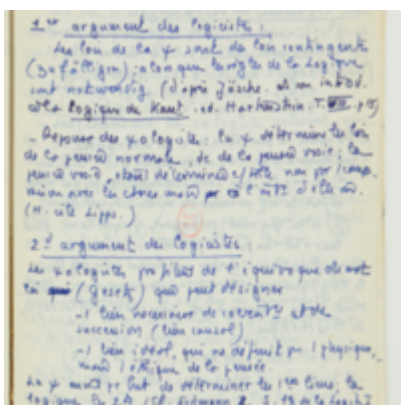 1er argument des logicistes :
Les lois de la ψ sont des lois contingentes
(zufälligen) alors que les règles de la Logique
sont notwendig. (d'après Jäsche. ds son introd.
à la Logique de Kant. ed. Hartenstein. T. VIII. p 15)
- Réponse des ψologistes : la ψ détermine les lois
de la pensée normale, de la pensée vraie ; la
pensée vraie étant déterminée telle non par
avec les choses mais
(H. cite Lipps.)
2e argument des logicistes :
Les ψologistes profitent de l'équivoque du mot
loi (Gesetz) qui peut désigner
-1 lien nécessaire de et de
succession (lien causal)
-1 lien idéal, qui ne définit pas 1 physique,
mais 1 éthique de la pensée.
La ψ aurait pr but de déterminer les 1ers liens ; la
logique les 2ds